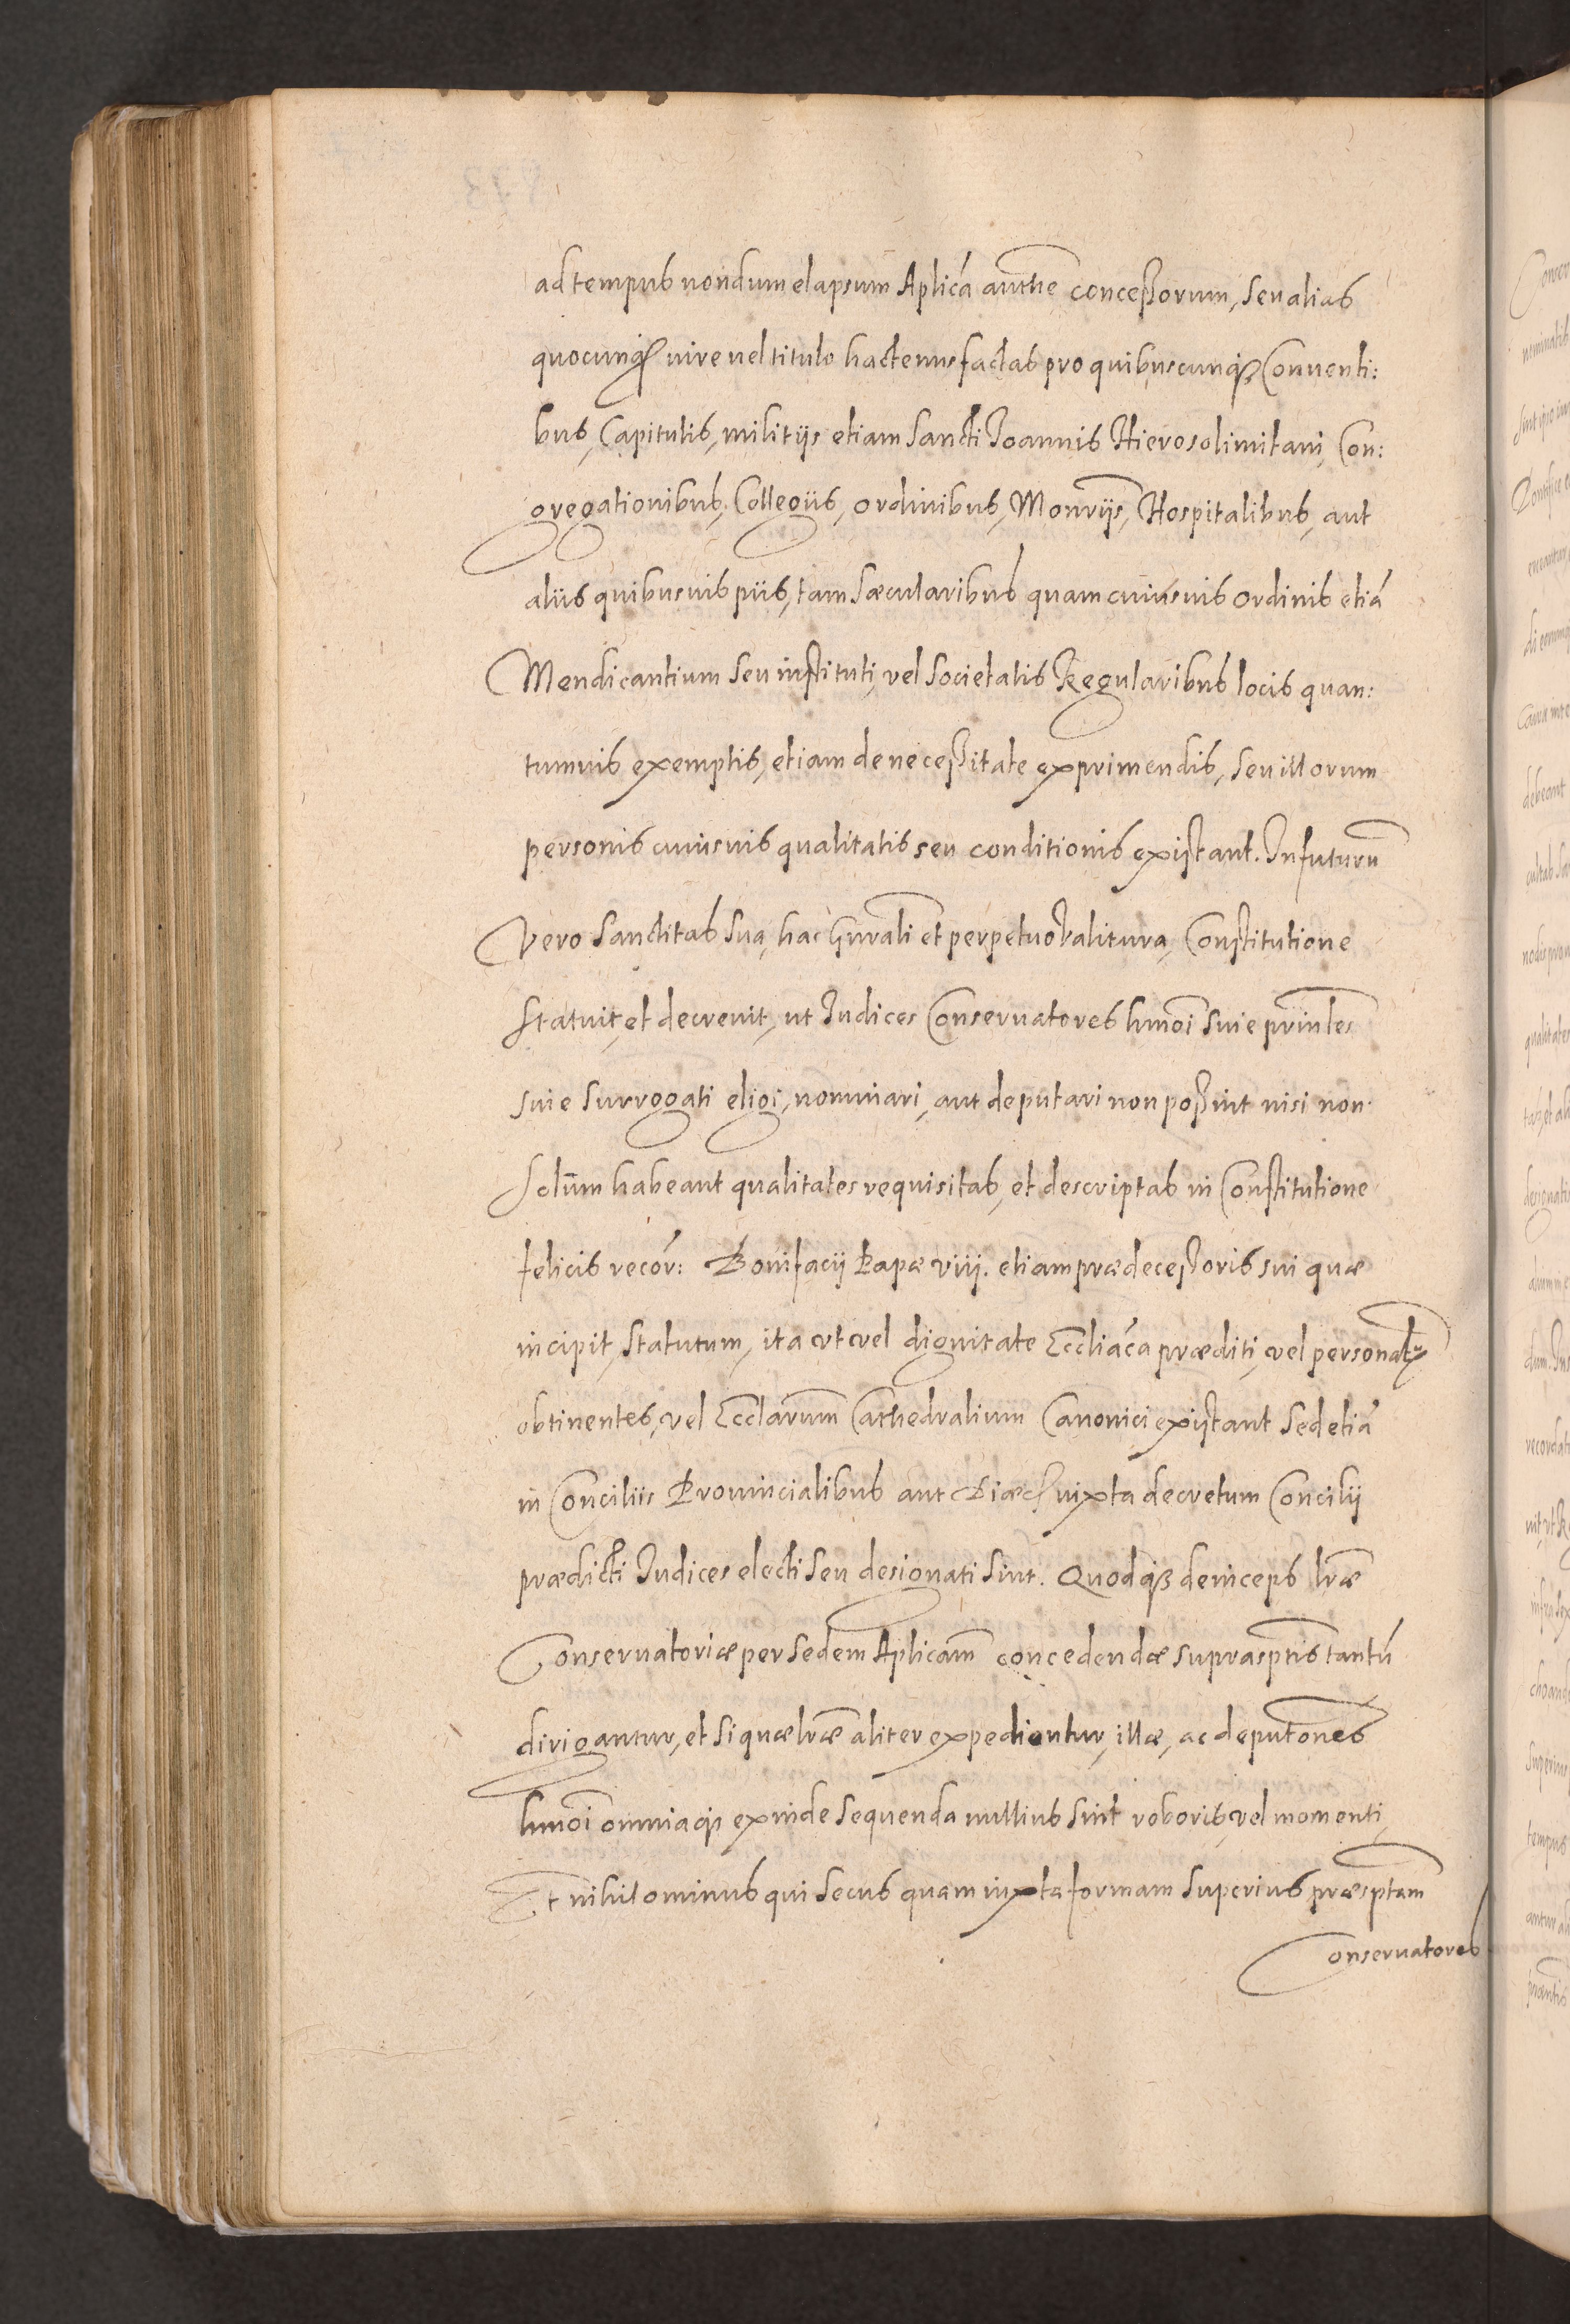 ad tempus nondum elapsum Aplicá autthe concessorum, seu alias
quocunq; iure uel titulo hactenus factas pro quibuscunq; Conuenti:
bus, Capitulis, militijs etiam Sancti Joannis Hierosolimitani, Con:
gregationibus, Collegiis, ordinibus, Monrijs, Hospitalibus, aut
aliis quibusuis piis, tam sæcularibus quam cuiusuis ordinis etiã
Mendicantium seu instituti, vel societatis Regularibus locis quan:
tumuis exemptis, etiam de necessitate exprimendis, seu illorum
personis cuiusuis qualitatis seu conditionis existant. In futurũ
Vero Sanctitas sua, hac gnrali et perpetuo valitura, Constitutione
statuit, et decreuit, ut Iudices Conseruatores hmoi siue prinles
siue surrogati eligi, nominari, aut deputari non possint nisi non
solum habeant qualitates requisitas, et descriptas in Constitutione
felicis recor: Bonifacij Papæ viij. etiam prædecessoris sui quæ
incipit, statutum, ita vt vel dignitate Eccliáca præditi, vel personatũ
obtinentes, vel Ecclarum Cathedralium Canonici existant sed etiã
in Conciliis Prouincialibus aut iuxta decretum Concilij
prædicti Iudices electi seu designati sint. Quodq; deinceps lræ
Conseruatoriæ per sedem Aplicam concedendæ suprasptis tantũ
dirigantur, et si quæ lræ aliter expediantur, illæ, ac deputones
hmoi omniaq; exinde sequenda nullius sint roboris, vel momenti,
Et nihilominus qui secus quam iuxta formam superius præsptam
Conseruatores